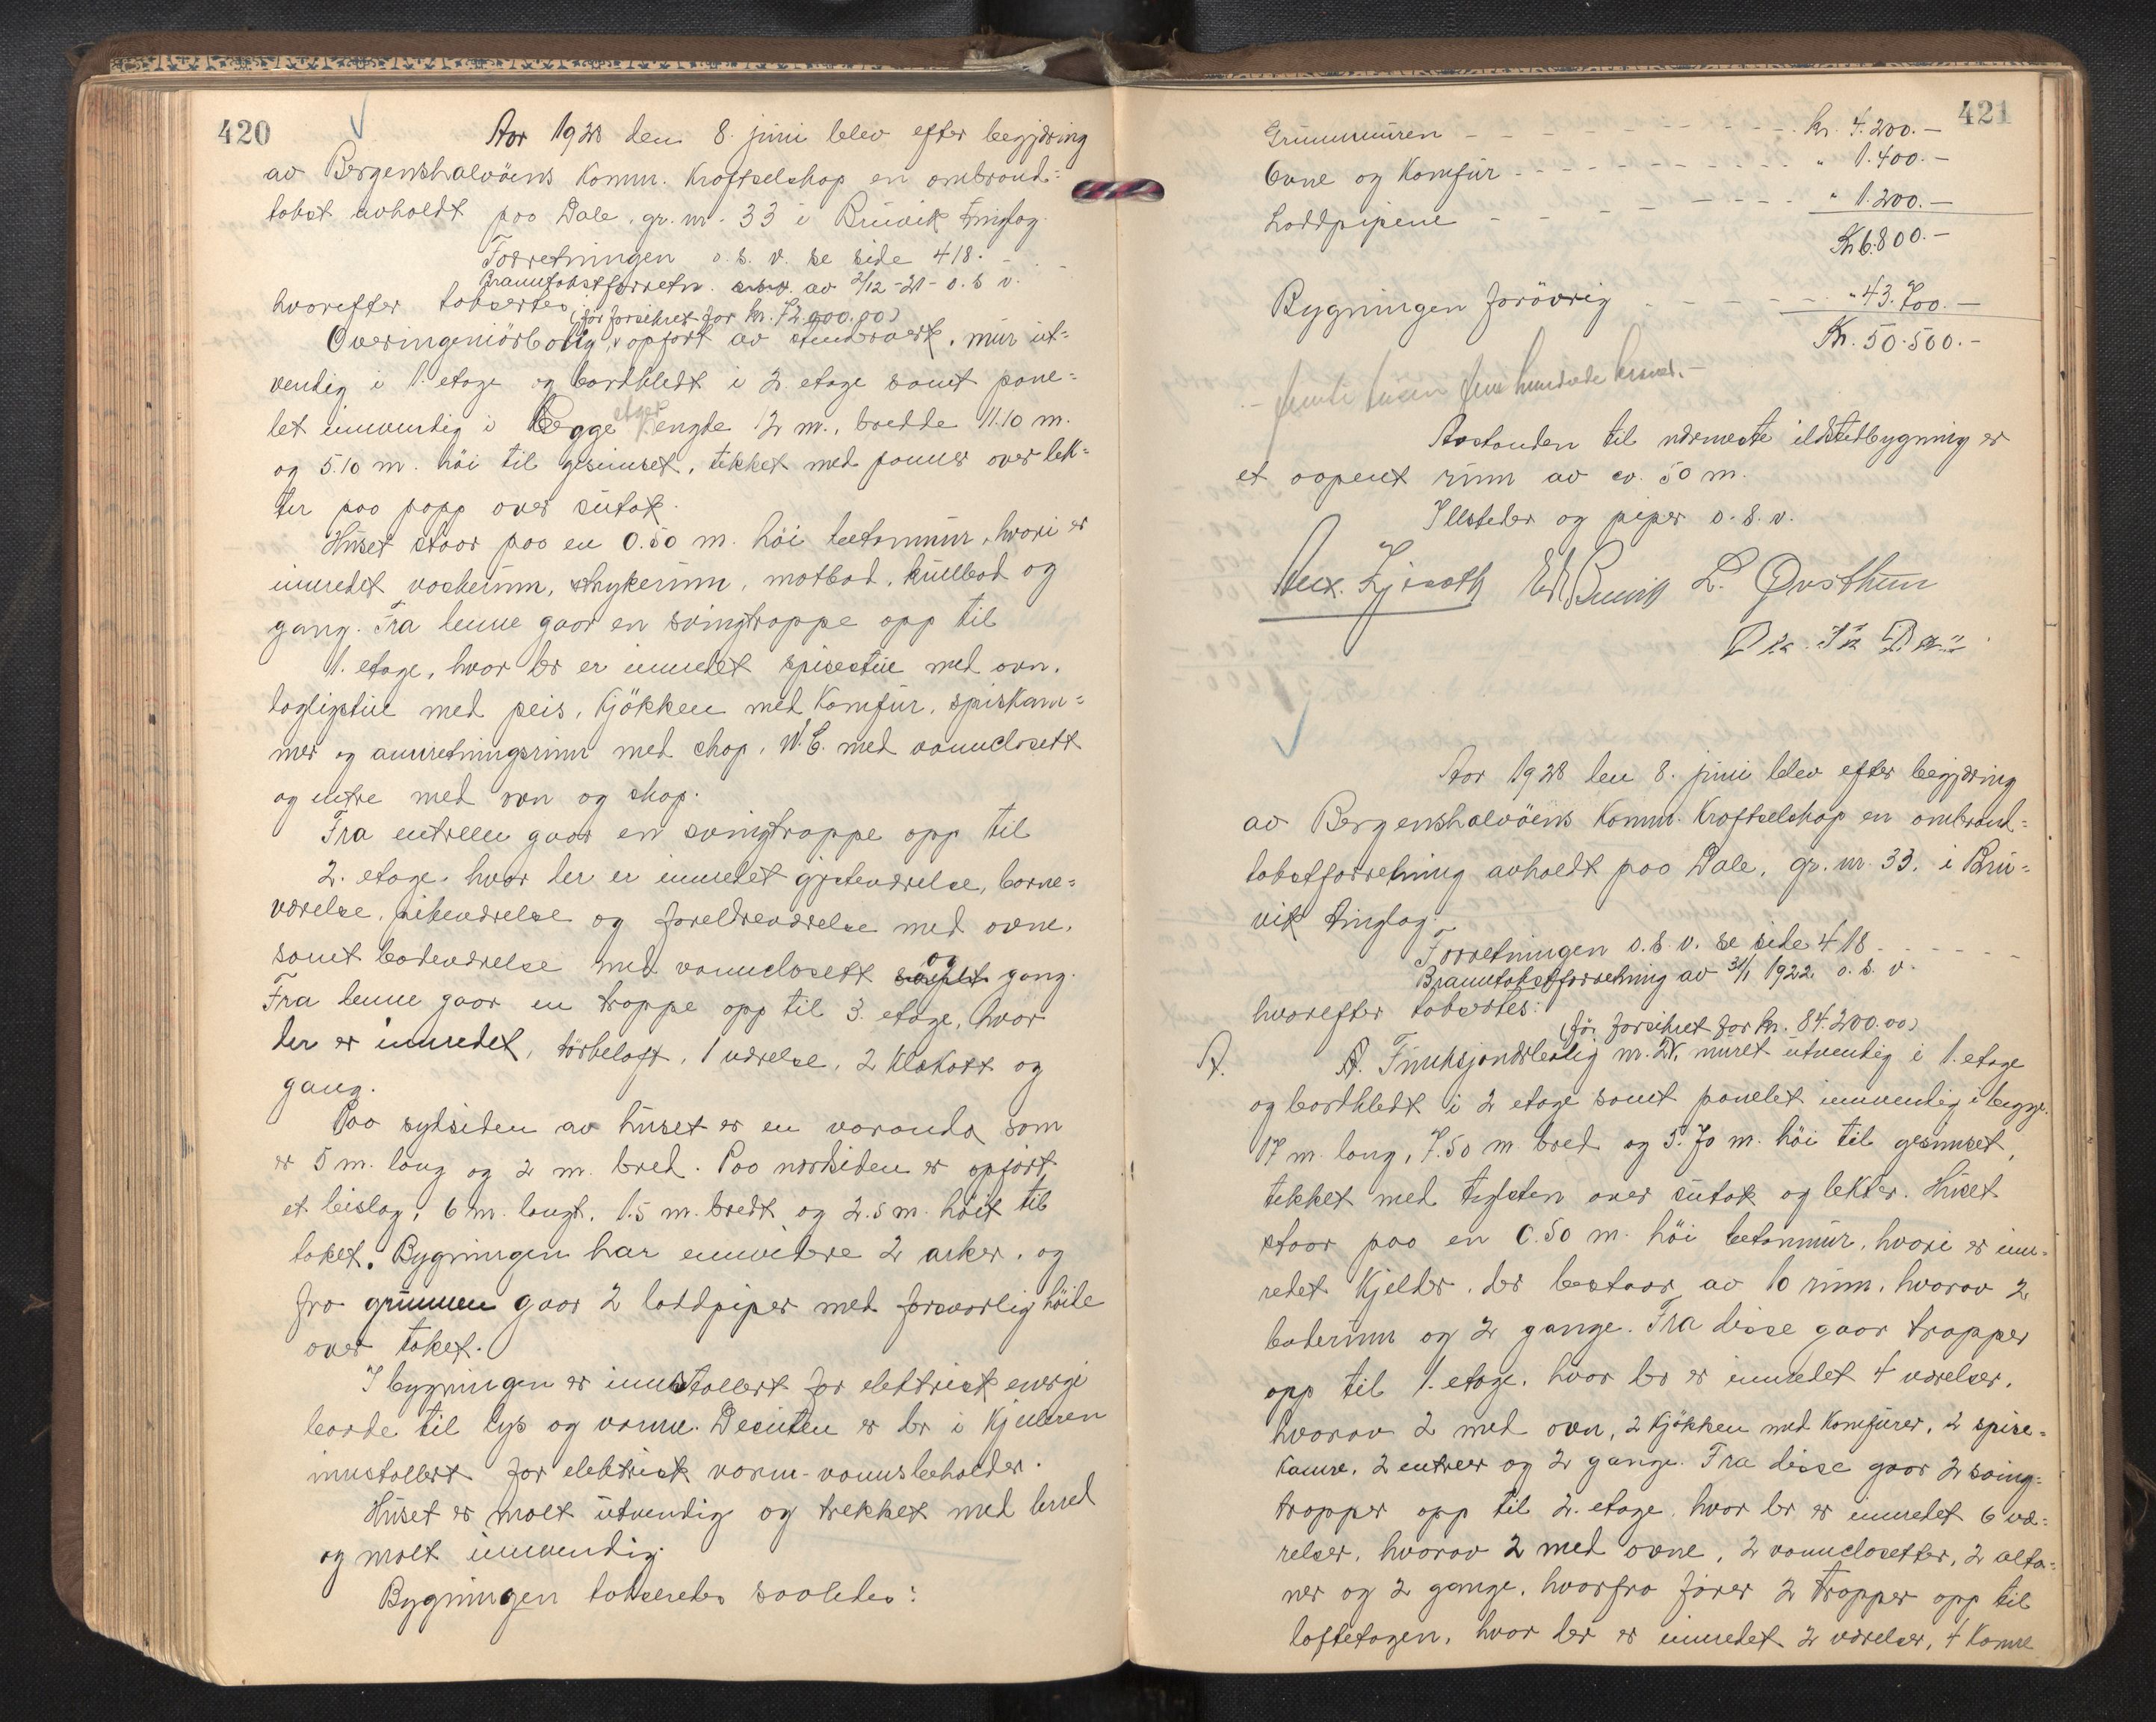 420
Aar 1928 den 8. juni blev efter begjæring
av Bergenshalvöens Komm. Kraftselskap en ombrand-
takst avholdt paa Dale, gr. nr. 33 i Bruvik tinglag.
Forretningen o. s. v. se side 418. -
Branntakstforretn. av 2/12-21- o. s v.
hvorefter taksertes:
(för forsikret for kr. 72.000.00)
Overingeniörbolig, opfört av stenderverk, mur ut-
vendig i 1. etage og bordkledt i 2. etage samt pane-
let innvendig i begge etager, Lengde 12 m., bredde 11.10 m.
og 5.10 m. höi til gesimset, tekket med panner over lek-
ter paa papp over sutak.
Huset staar paa en 0.50 m. höi betonmur, hvori er
innredet vaskerum, strykerum, matbod, kullbod og
gang. Fra denne gaar en svingtrappe opp til
1. etage, hvor der er innredet spisestue med ovn,
dagligstue med peis, kjökken med komfur, spiskam-
mer og annretningsrum med skap, W.C. med vannclosett
og entre med ovn og skap.
Fra entreen gaar en svingtrappe opp til
2. etage, hvor der er innredet gjesteværelse, barne-
værelse, pikeværelse og foreldreværelse med ovne,
samt badeværelse med vannclosett og gang.
Fra denne gaar en trappe opp til 3. etage, hvor
der er innredet, törkeloft, 1 værelse, 2 klekott og
gang.
Paa sydsiden av huset er en varanda som
er 5 m. lang og 2 m. bred. Paa nordsiden er opfört
et bislag, 6 m. langt, 1.5 m. bredt og 2.5 m. höit til
taket. Bygningen har ennvidere 2 arker, og
fra grunnen gaar 2 loddpiper med forsvarlig höide
over taket.
I bygningen er innstallert for elektrisk energi
baade til lys og varme. Desuten er der i kjelderen
innstallert for elektrisk varm-vannsbeholder.
Huset er malt utvendig og trekket med lerred
og malt innvendig.
Bygningen takseredes saaledes:
421
Grunnmuren - - - - - kr. 4.200.-
Ovne og komfur - - - - - " 1.400.-
Loddpipene - - - - - " 1.200.-
Kr 6.800.-
Bygningen forövrig - - - - - " 43.700.-
Kr. 50.500.-
- femti tusen fem hundrede kroner. -
Avstanden til nærmeste ildstedbygning er
et aapent rum av ca. 50 m.
Illsteder og piper o. s. v.
L. Øvsthun
Aar 1928 den 8. juni blev efter begjæring
av Bergenshalvöens Komm. Kraftselskap en ombrand-
takstforretning avholdt paa Dale, gr. nr. 33. i Bru-
vik tinglag.
Forretningen o. s. v. se side 418 - - - -
Branntakstforretning av 31/1 1922 o. s. v.
hvorefter takseres:
(för forsikret for kr. 84.200.00)
A. A. Funksjonærbolig nr. IV, muret utvendig i 1. etage
og bordkledt i 2 etage samt panelet innvendig i begge.
17 m. lang, 7.50 m. bred og 5.70 m. höi til gesimset,
tekket med taksten over sutak og lekter. Huset
staar paa en 0.50 m. höi betonmur, hvori er inn-
redet kjelder, der bestaar av 10 rum, hvorav 2
baderum og 2 gange. Fra disse gaar trapper
opp til 1. etage, hvor der er innredet 4 værelser,
hvorav 2 med ovn, 2 kjökken med komfurer, 2 spise-
kamre, 2 entreer og 2 gange. Fra disse gaar 2 sving-
trapper opp til 2. etage, hvor der er innredet 6 væ-
relser, hvorav 2 med ovne, 2 vannclosetter, 2 alta-
ner og 2 gange, hvorfra förer 2 trapper opp til
loftetagen, hvor der er innredet 2 værelser, 4 kamre